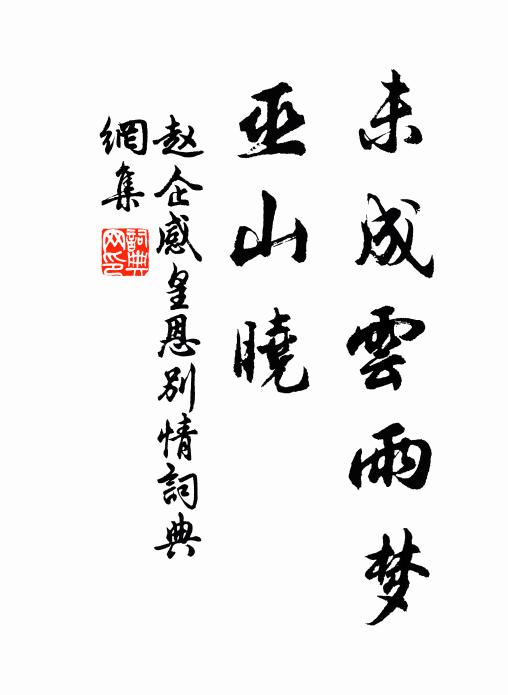 未成雲雨梦
巫山曉
赵企感皇恩別情詞典
網集
詞典网印